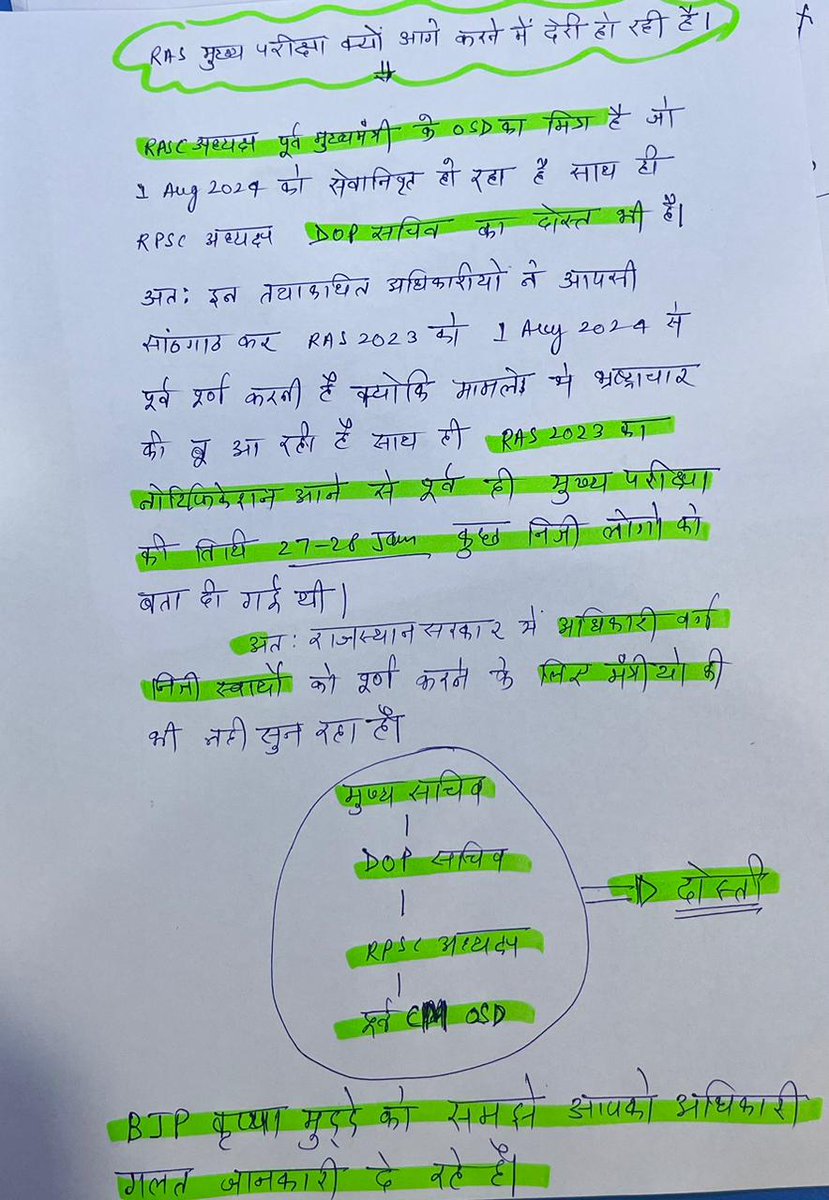 RAS मुख्य परीक्षा क्यों आगे करने में देरी हो रही है।
RASC अध्यक्ष पूर्व मुख्यमंत्री के OSD का मित्र है जो
1 Aug 2024 को सेवानिवृत हो रहा है साथ ही
RPSC अध्यक्ष DOP सचिव का दोस्त भी है।
अतः इन तथाकथित अधिकारीयो ने आपसी
सांठगाठ कर RAS 2023 को 1 Aug 2024 से
पूर्व पूर्ण करनी है क्योकि मामले मे भ्रष्ट्राचार
की बू आ रही है साथ ही RAS 2023 का
नोटिफिकेशन आने से पूर्व ही मुख्य परीक्षा
की तिथि 27-28 Jan कुछ निजी लोगो को
बता दी गई थी।
अतः राजस्थान सरकार में अधिकारी वर्ग
निजी स्वार्थो को पूर्ण करने के लिए मंत्रीयो की
भी नही सुन रहा है।
मुख्य सचिव
DOP सचिव
दोस्ती
RPSC अध्यक्ष
पूर्व CM OSD
BJP कृप्या मुद्दे को समझे आपको अधिकारी
गलत जानकारी दे रहे है।